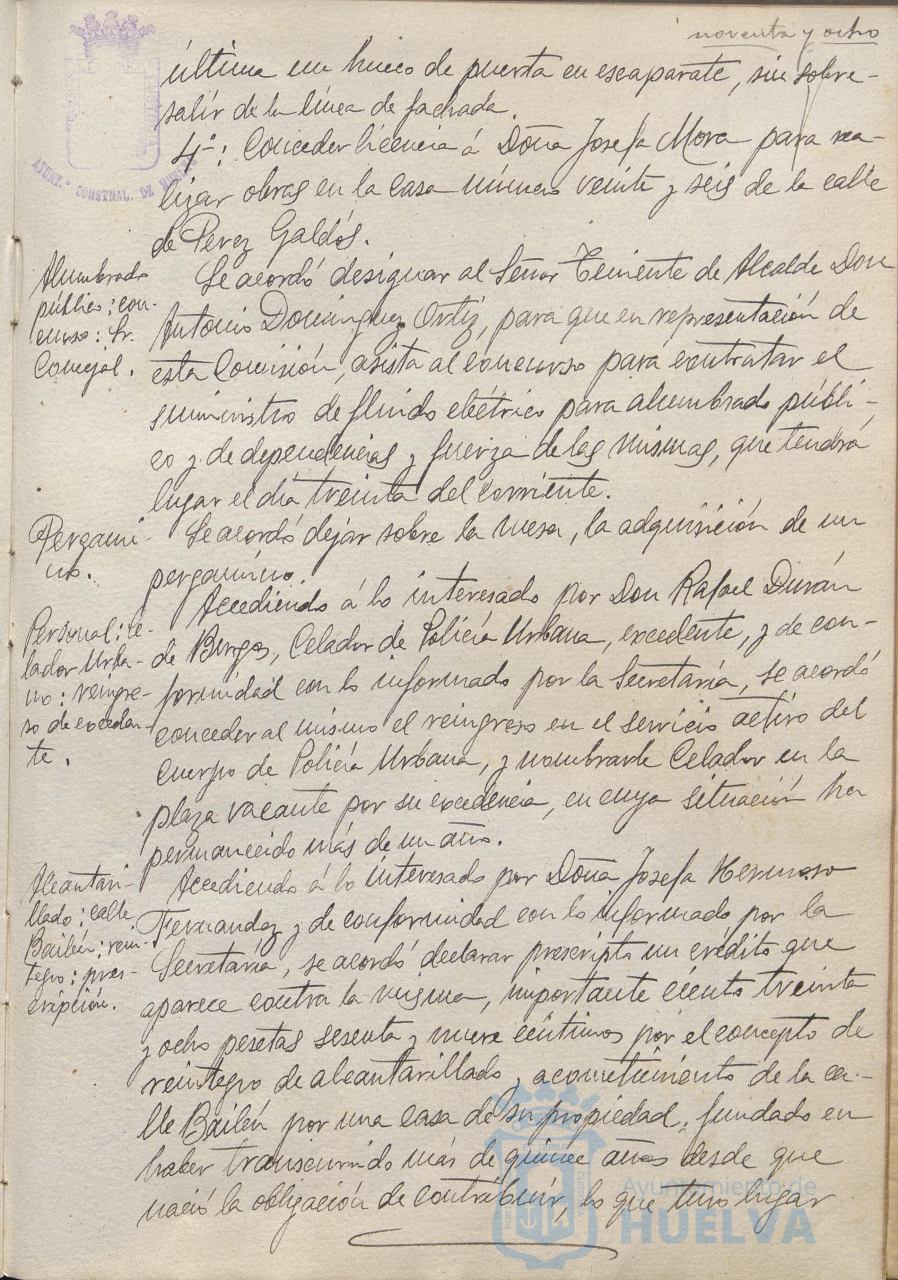 noventa y ocho
AYUNT.º CONSTNAL. DE
última un hueco de puerta en escaparate, sin sobre-
salir de la línea de fachada.
4º: Conceder licencia á Doña Josefa Mora para rea-
lizar obras en la casa número veinte y seis de la calle
de Perez Galdós.
Alumbrado
público; con-
curso: Sr.
Concejal.
Se acordó designar al Señor Teniente de Alcalde Don
Antonio Dominguez Ortiz, para que en representación de
esta Comisión, asista al concurso para contratar el
suministro de fluido eléctrico para alumbrado públi-
co y de dependencias y fuerza de las mismas, que tendrá
lugar el día treinta del corriente.
Pergami-
no.
Se acordó dejar sobre la mesa, la adquisición de un
pergamino.
Personal: ce-
lador Urba-
no: reingre-
so de exceden-
te.
Accediendo á lo interesado por Don Rafael Durán
de Burgos, Celador de Policía Urbana, excedente, y de con-
formidad con lo informado por la Secretaría, se acordó
conceder al mismo el reingreso en el servicio activo del
Cuerpo de Policía Urbana, y nombrarle Celador en la
plaza vacante por su excedencia, en cuya situación ha
permanecido más de un año.
Alcantari-
llado; calle
Bailén; rein-
tegro: pres-
cripción.
Accediendo á lo interesado por Doña Josefa Hermoso
Fernandez y de conformidad con lo informado por la
Secretaría, se acordó declarar prescripto un crédito que
aparece contra la misma, importante ciento treinta
y ocho pesetas sesenta y nueve céntimos por el concepto de
reintegro de alcantarillado, acometimiento de la ca-
lle Bailén por una casa de su propiedad, fundado en
haber transcurrido más de quince años desde que
nació la obligación de contribuir, lo que tuvo lugar
Ayuntamiento de
HUELVA